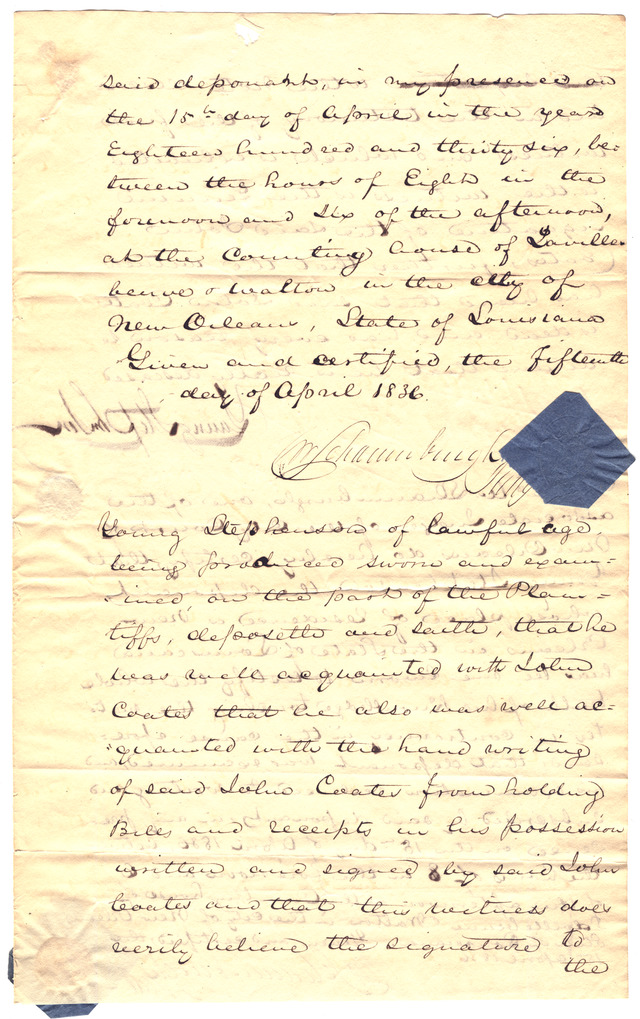 said deponant, in my presence on
the 15th day of April in the year
Eighteen hundred and thirty six, be=
tween the hours of Eight in the
forenoon and Six of the afternoon,
at the Counting house of Laville
beuve & Walton in the city of
New Orleans, State of Louisiana
Given and certified, the Fifteenth
day of April 1836.
Young Stephenson of lawful age,
being produced sworn and exam=
=ined, on the part of the Plain=
tiffs, deposeth and saith, that he
was well acquainted with John
Coates that he also was well ac=
=quainted with the hand writing
of said John Coates from holding
Bills and receipts in his possession
written and signed by said John
Coates and that this witness does
verily believe the signature to
the